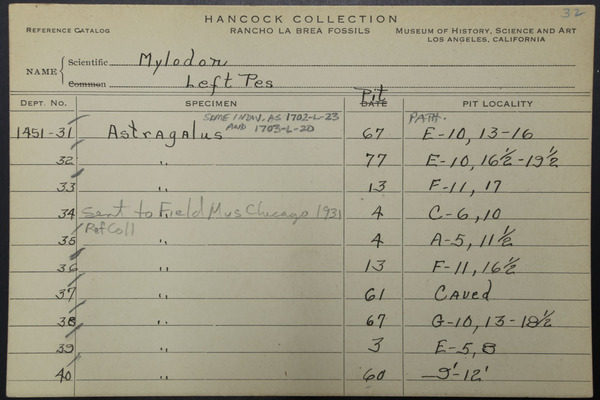 32
HANCOCK COLLECTION
REFERENCE CATALOG RANCHO LA BREA FOSSILS MUSEUM OF HISTORY, SCIENCE AND ART
LOS ANGELES, CALIFORNIA
NAME { Scientific Mylodon
Common Left Pes
Pit
DEPT. NO. SPECIMEN DATE PIT LOCALITY
SAME INDIV. AS 1702-L-23 PATH.
AND 1703-L-20
1451-31 Astragalus 67 E-10, 13-16
32 " 77 E-10, 16½-19½
33 " 13 F-11, 17
34 Sent to Field Mus Chicago 1931 4 C-6, 10
Ref Coll
35 " 4 A-5, 11½
36 " 13 F-11, 16½
37 " 61 Caved
38 " 67 G-10, 13-18½
39 " 3 E-5, 8
40 " 60 9'-12'